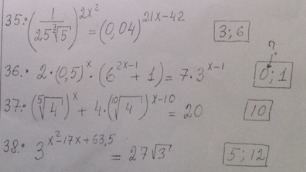 35.• (1/(25∛5))^(2x²) = (0,04)^(21x-42) 3;6
?
36.• 2·(0,5)^x·(6^(2x-1)+1) = 7·3^(x-1) 0;1
37.• (⁵√4)^x + 4·(¹⁰√4)^(x-10) = 20 10
38.• 3^(x²-17x+63,5) = 27√3 5;12